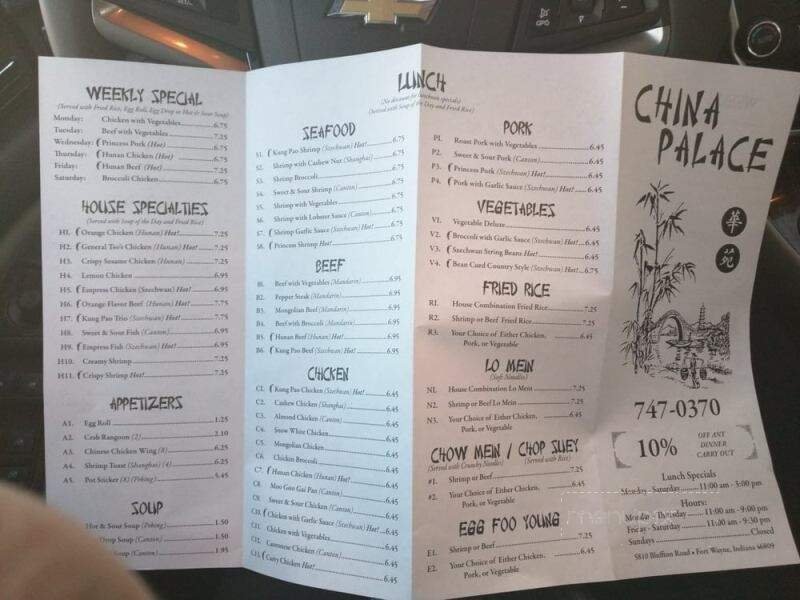 WEEKLY SPECIAL
(Served with Fried Rice, Egg Roll, Egg Drop or Hot & Sour Soup)
Monday: Chicken with Vegetables 6.75
Tuesday: Beef with Vegetables 7.25
Wednesday: Princess Pork (Hot) 6.75
Thursday: Hunan Chicken (Hot) 6.75
Friday: Hunan Beef (Hot) 7.25
Saturday: Broccoli Chicken 6.75
HOUSE SPECIALTIES
(Served with Soup of the Day and Fried Rice)
H1. Orange Chicken (Hunan) Hot! 7.25
H2. General Tso's Chicken (Hunan) Hot! 7.25
H3. Crispy Sesame Chicken (Hunan) 7.25
H4. Lemon Chicken 6.95
H5. Empress Chicken (Szechwan) Hot! 6.95
H6. Orange Flavor Beef (Hunan) Hot! 7.75
H7. Kung Pao Trio (Szechwan) Hot! 7.75
H8. Sweet & Sour Fish (Canton) 6.95
H9. Empress Fish (Szechwan) Hot! 6.95
H10. Creamy Shrimp 7.25
H11. Crispy Shrimp Hot! 7.25
APPETIZERS
A1. Egg Roll 1.25
A2. Crab Rangoon (2) 2.10
A3. Chinese Chicken Wing (8) 6.25
A4. Shrimp Toast (Shanghai) (4) 6.25
A5. Pot Sticker (8) (Peking) 5.45
SOUP
Hot & Sour Soup (Peking) 1.50
Drop Soup (Canton) 1.50
Soup (Canton) 1.95
LUNCH
(No discount for luncheon specials)
Served with Soup of the Day and Fried Rice)
SEAFOOD
S1. Kung Pao Shrimp (Szechwan) Hot! 6.75
S2. Shrimp with Cashew Nut (Shanghai) 6.75
S3. Shrimp Broccoli 6.75
S4. Sweet & Sour Shrimp (Canton) 6.75
S5. Shrimp with Vegetables 6.75
S6. Shrimp with Lobster Sauce (Canton) 6.75
S7. Shrimp Garlic Sauce (Szechwan) Hot! 6.75
S8. Princess Shrimp Hot! 6.75
BEEF
B1. Beef with Vegetables (Mandarin) 6.95
B2. Pepper Steak (Mandarin) 6.95
B3. Mongolian Beef (Mandarin) 6.95
B4. Beef with Broccoli (Mandarin) 6.95
B5. Hunan Beef (Hunan) Hot! 6.95
B6. Kung Pao Beef (Szechwan) Hot! 6.95
CHICKEN
C1. Kung Pao Chicken (Szechwan) Hot! 6.45
C2. Cashew Chicken (Shanghai) 6.45
C3. Almond Chicken (Canton) 6.45
C4. Snow White Chicken 6.45
C5. Mongolian Chicken 6.45
C6. Chicken Broccoli 6.45
C7. Hunan Chicken (Hunan) Hot! 6.45
C8. Moo Goo Gai Pan (Canton) 6.45
C9. Sweet & Sour Chicken (Canton) 6.45
C10. Chicken with Garlic Sauce (Szechwan) Hot! 6.45
C11. Chicken with Vegetables 6.45
C12. Cantonese Chicken (Canton) 6.45
C13. Curry Chicken Hot! 6.45
PORK
P1. Roast Pork with Vegetables 6.45
P2. Sweet & Sour Pork (Canton) 6.45
P3. Princess Pork (Szechwan) Hot! 6.45
P4. Pork with Garlic Sauce (Szechwan) Hot! 6.45
VEGETABLES
V1. Vegetable Deluxe 6.45
V2. Broccoli with Garlic Sauce (Szechwan) Hot! 6.45
V3. Szechwan String Beans Hot! 6.45
V4. Bean Curd Country Style (Szechwan) Hot! 6.75
FRIED RICE
R1. House Combination Fried Rice 7.25
R2. Shrimp or Beef Fried Rice 7.25
R3. Your Choice of Either Chicken, 6.45
Pork, or Vegetable
LO MEIN
(Soft Noodles)
N1. House Combination Lo Mein 7.25
N2. Shrimp or Beef Lo Mein 7.25
N3. Your Choice of Either Chicken, 6.45
Pork, or Vegetable
CHOW MEIN / CHOP SUEY
(Served with Crunchy Noodles) (Served with Rice)
#1. Shrimp or Beef 7.25
#2. Your Choice of Either Chicken, 6.45
Pork, or Vegetable
EGG FOO YOUNG
E1. Shrimp or Beef 7.25
E2. Your Choice of Either Chicken, 6.45
Pork, or Vegetable
CHINA
PALACE
華
苑
747-0370
10% OFF ANY
DINNER
CARRY OUT
Lunch Specials
Monday - Saturday 11:00 am - 3:00 pm
Hours:
Monday - Thursday 11:00 am - 9:00 pm
Friday - Saturday 11:00 am - 9:30 pm
Sundays Closed
5810 Bluffton Road • Fort Wayne, Indiana 46809